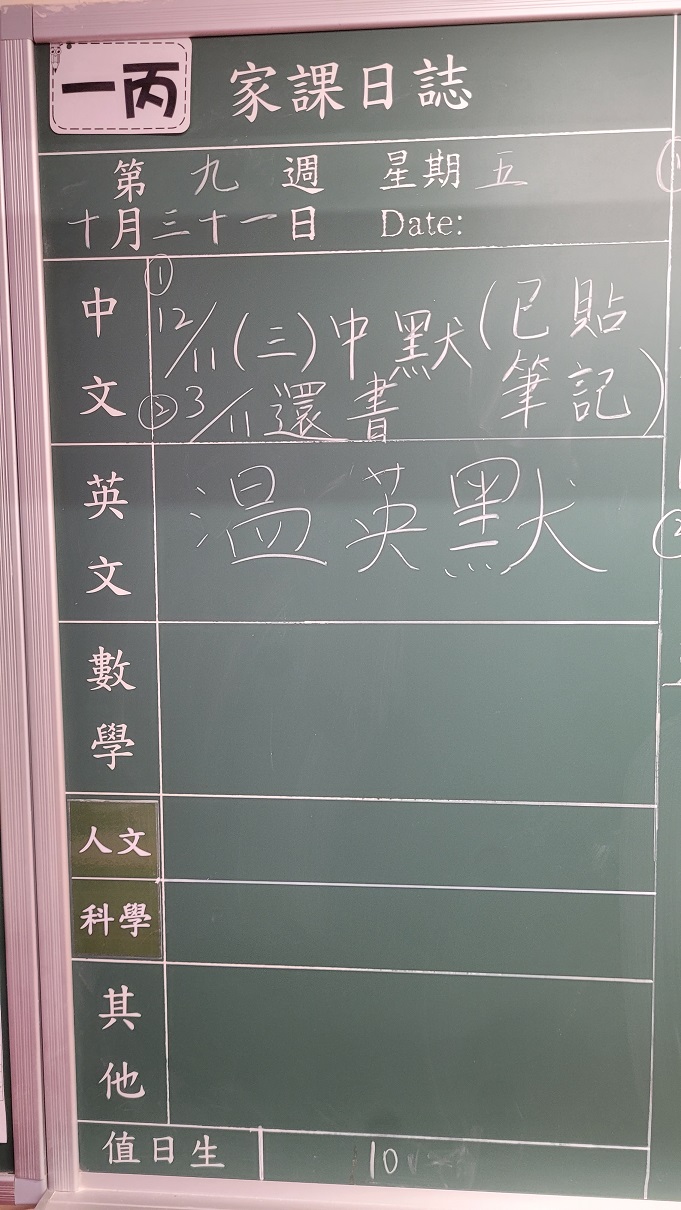 一丙 家課日誌
第九週 星期五
十月三十一日 Date:
中文
① 12/11(三)中默(已貼筆記)
② 3/11還書
英文
溫英默
數學
人文
科學
其他
值日生 10